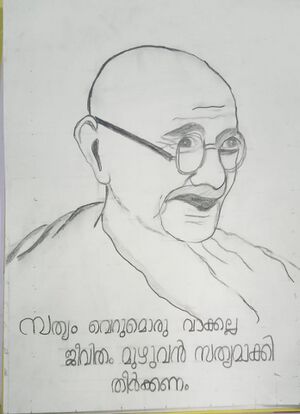 സത്യം വെറുമൊരു വാക്കല്ല
ജീവിതം മുഴുവൻ സത്യമാക്കി
തീർക്കണം